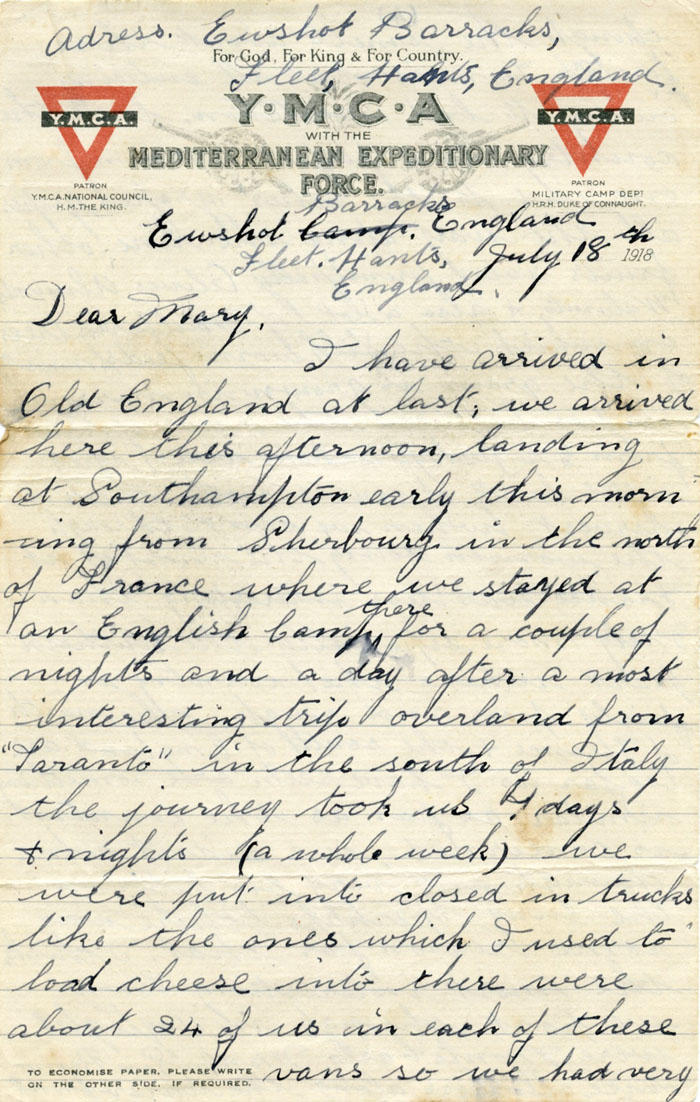 Adress. Ewshot Barracks,
For God, For King & For Country.
Fleet, Hants, England.
Y.M.C.A.
Y·M·C·A
Y.M.C.A.
WITH THE
MEDITERRANEAN EXPEDITIONARY
FORCE.
PATRON
Y.M.C.A. NATIONAL COUNCIL,
H.M. THE KING.
PATRON
MILITARY CAMP DEPT
H.R.H. DUKE OF CONNAUGHT.
Barracks
Ewshot Camp. England
Fleet. Hants, July 18th 1918
England.
Dear Mary,
I have arrived in
Old England at last, we arrived
here this afternoon, landing
at Southampton early this morn
-ing from Sherbourg in the north
of France where we stayed at
there
an English Camp, for a couple of
nights and a day after a most
interesting trip overland from
"Taranto" in the south of Italy
the journey took us 7 days
& nights (a whole week) we
were put into closed in trucks
like the ones which I used to
load cheese into there were
about 24 of us in each of these
TO ECONOMISE PAPER, PLEASE WRITE
ON THE OTHER SIDE, IF REQUIRED.
vans so we had very